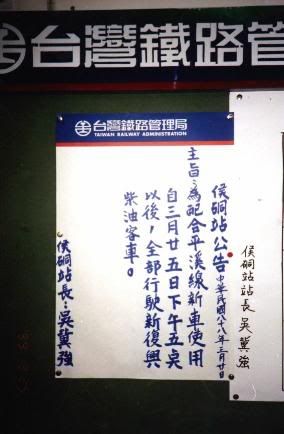 台灣鐵路管
台灣鐵路管理局
TAIWAN RAILWAY ADMINISTRATION
侯硐站公告 中華民國八十八年三月廿日
主旨:為配合平溪線新車使用
自三月廿五日下午五奌
以後,全部行駛新復興
柴油客車。
侯硐站長:吳冀強
侯硐站長 吳冀強